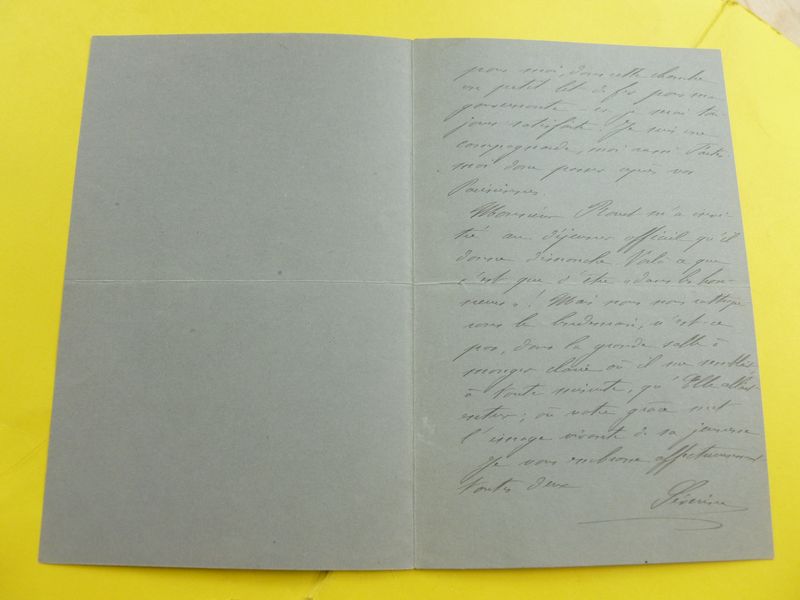 pour moi, dans cette chambre
un petit lit de fer pour ma
gouvernante - et je serai tou
jours satisfaite. Je suis une
campagnarde, moi aussi
moi donc après vos
Parisiennes.
Monsieur m'a invi-
té au déjeuner officiel qu'il
donne dimanche. Voilà ce que
c'est que d'être « dans les hon-
neurs » ! Mais nous nous rattrape
rons le lendemain, n'est-ce
pas, dans la grande salle à
manger claire où il me semblait,
à toute minute, qu'Elle allait
entrer ; où votre grâce met
l'image vivante de sa jeunesse
Je vous embrasse affectueusement
toutes deux
Séverine